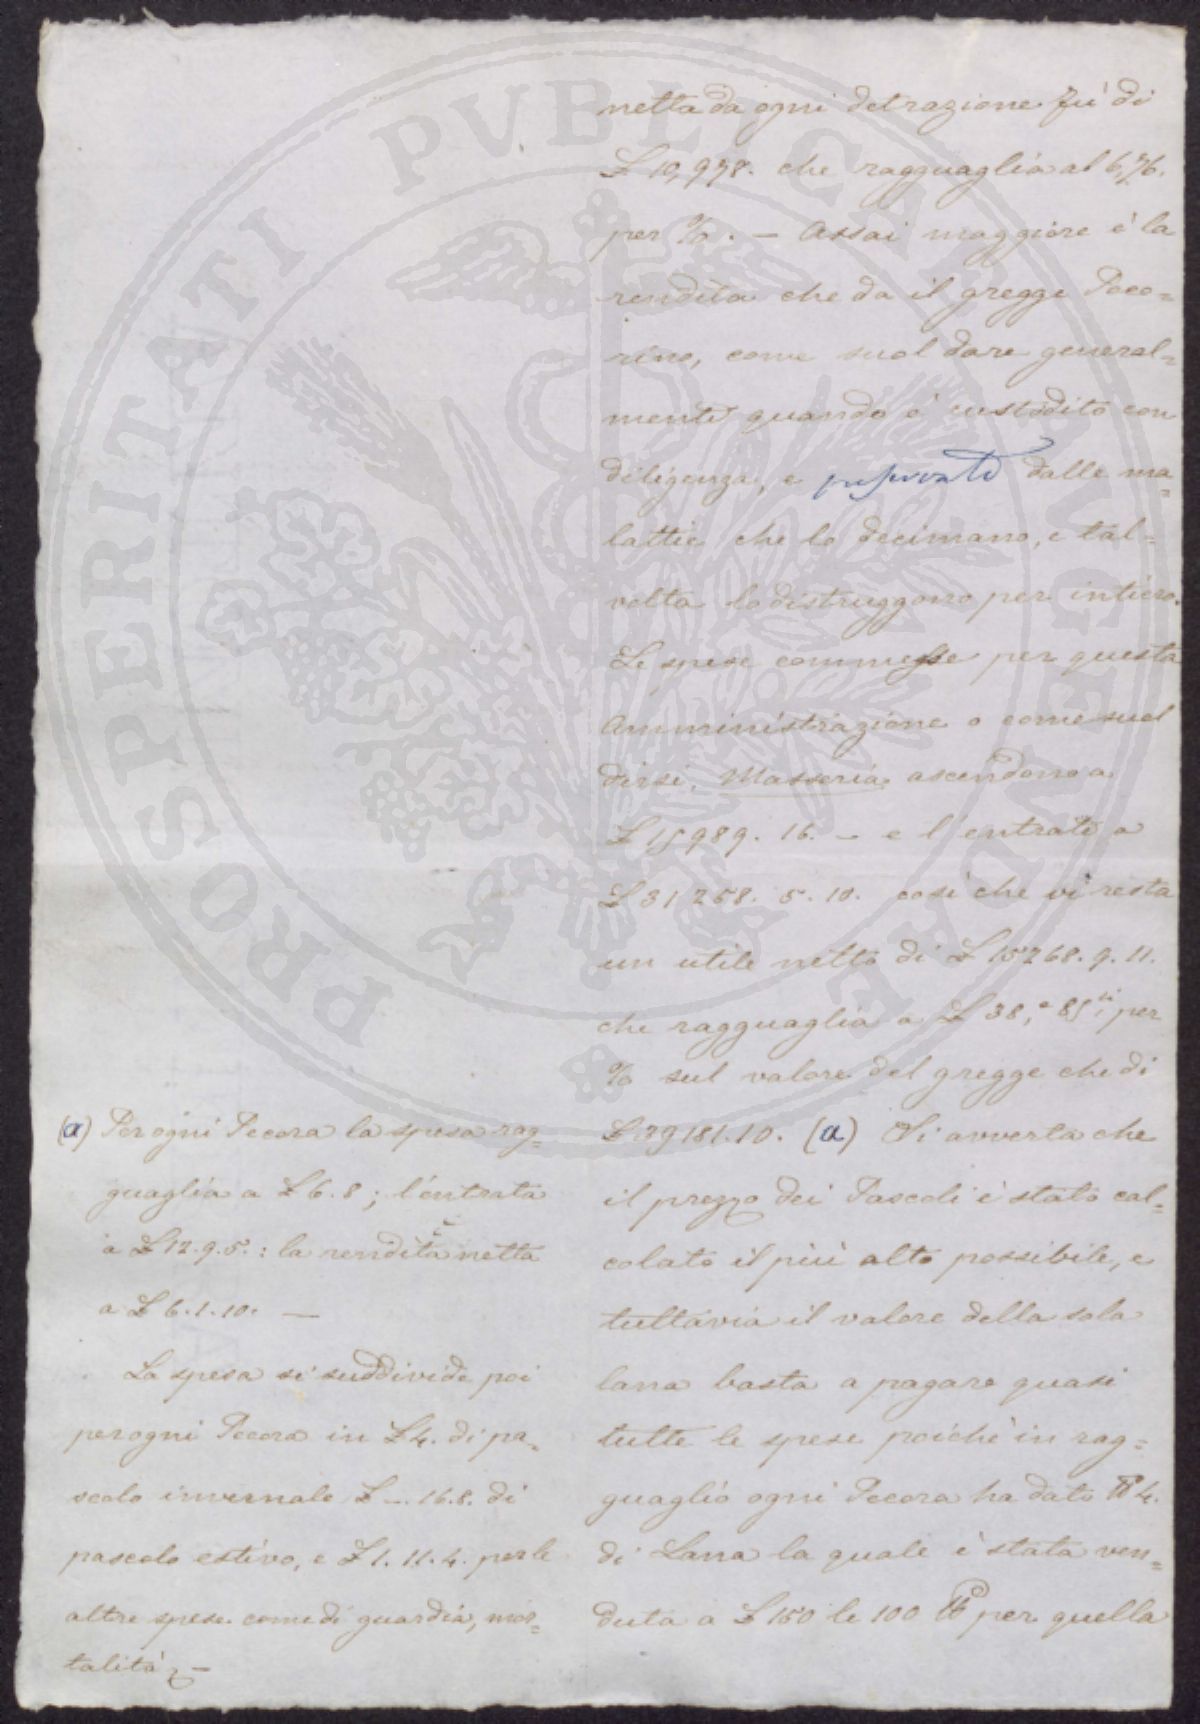 netta da ogni detrazione fu' di
£ 10,978. che ragguaglia al 6,76.
per %. — Assai maggiore è la
rendita che da il gregge Peco=
rino, come suol dare general=
mente quando è custodito con
diligenza, e preservato dalle ma=
lattie che lo decimano, e tal=
volta lo distruggono per intiero.
Le spese commesse per questa
Amministrazione o come suol
dirsi, Masseria ascendono a
£ 15989. 16. – e l'entrate a
£ 31258. 5. 10. così che vi resta
un utile netto di £ 15268. 9. 11.
che ragguaglia a £ 38, e 85 per
% sul valore del gregge che di
£ 39181.10. (a) Si avverta che
il prezzo dei Pascoli è stato cal=
colato il più alto possibile, e
tuttavia il valore della sola
lana basta a pagare quasi
tutte le spese poiché in rag=
guaglio ogni Pecora ha dato ℔ 4.
di Lana la quale è stata ven=
duta a £ 150 le 100 ℔ per quella
(a) Per ogni Pecora la spesa rag=
guaglia a £ 6. 8; l'entrata
a £ 12. 9. 5.: la rendita netta
è a £ 6. 1. 10. —
La spesa si suddivide poi
per ogni Pecora in £ 4. di pa=
scolo invernale £ –. 16. 8. di
pascolo estivo, e £ 1. 11. 4. per le
altre spese come di guardia, mor=
talità –
PROSPERITATI PVBLICAE AVGENDAE